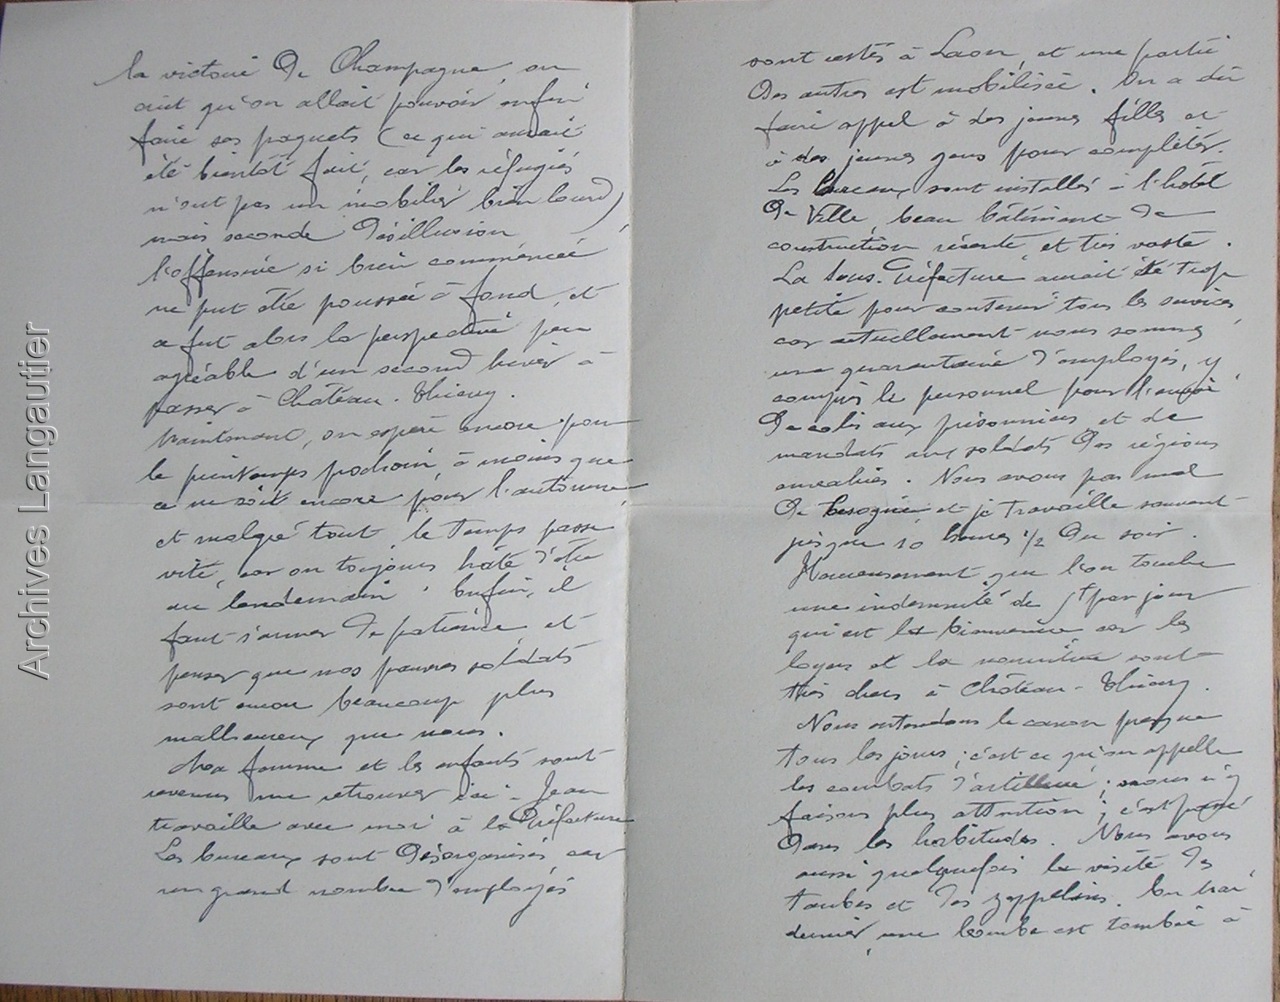 la victoire de Champagne, on
crut qu'on allait pouvoir enfin
faire ses paquets (ce qui aurait
été bientôt fait, car les réfugiés
n'ont pas un mobilier bien lourd)
mais seconde désillusion
l'offensive si bien commencée
ne put être poussée à fond, et
ce fut alors la perspective peu
agréable d'un second hiver à
passer à Château-Thierry.
Maintenant, on espère encore pour
le printemps prochain à moins que
ce ne soit encore pour l'automne
et malgré tout le temps passe
vite, car on toujours hâte d'être
au lendemain. Enfin, il
faut s'armer de patience et
penser que nos pauvres soldats
sont encore beaucoup plus
malheureux que nous.
Ma femme et les enfants sont
revenus me retrouver ici - Jean
travaille avec moi à la Préfecture
Les bureaux sont désorganisés, car
un grand nombre d'employés
sont restés à Laon, et une partie
des autres est mobilisée. On a dû
faire appel à des jeunes filles et
à des jeunes gens pour compléter.
Les bureaux sont installés à l'hôtel
de Ville, beau bâtiment de
construction récente et très vaste.
La Sous-Préfecture aurait été trop
petite pour contenir tous les services
car actuellement nous sommes
une quarantaine d'employés, y
compris le personnel pour l'envoi
de colis aux prisonniers et de
mandats aux soldats des régions
envahies. Nous avons pas mal
de besogne et je travaille souvent
jusque 10 heures 1/2 du soir.
Heureusement que l'on touche
une indemnité de 5f par jour
qui est la bienvenue car les
loyers et la nourriture sont
très chers à Château-Thierry.
Nous entendons le canon presque
tous les jours ; c'est ce qu'on appelle
les combats d'artillerie ; nous n'y
faisons plus attention ; c'est passé
dans les habitudes. Nous avons
aussi quelquefois la visite des
taubes et des zeppelins. En mai
dernier, une bombe est tombée à
Archives Langautier